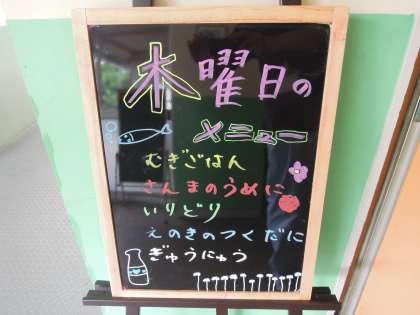 木曜日の
メニュー
むぎごはん
さんまのうめに
いりどり
えのきのつくだに
ぎゅうにゅう